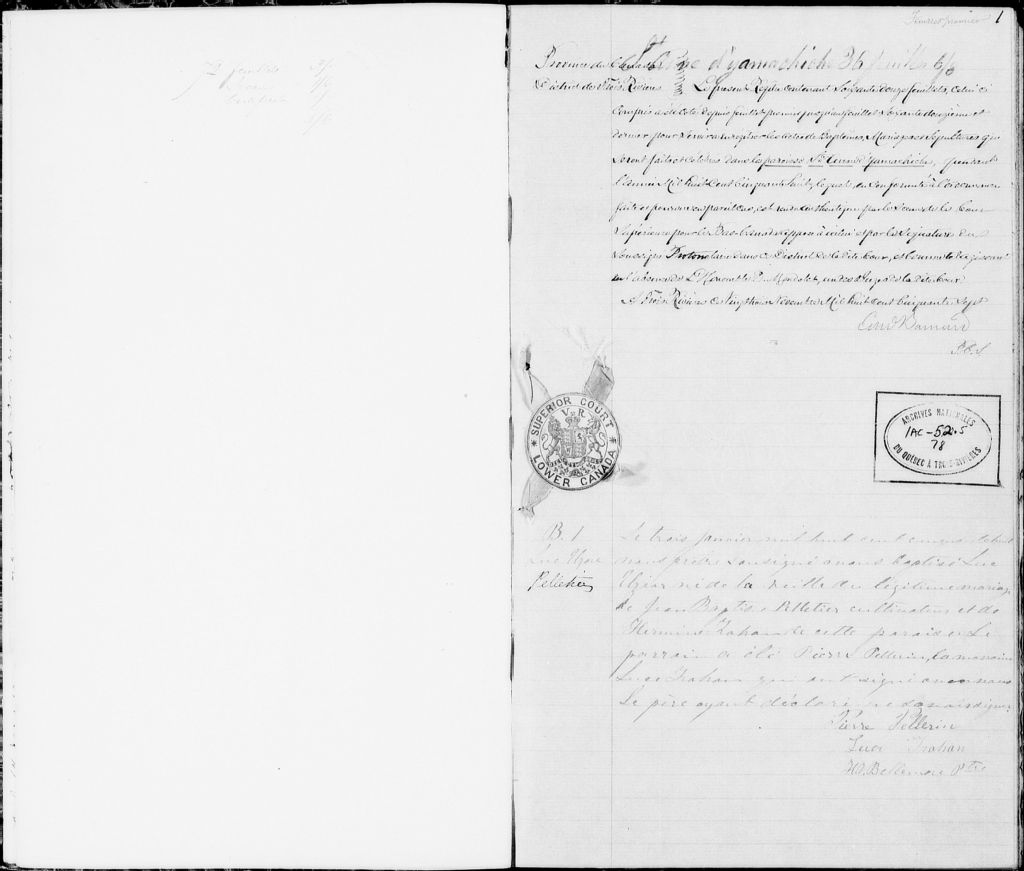 72 feuillets
Feuillet premier 1
Province du Canada
Ste Anne d'yamachiche 36 feuillets 6/3
District des Trois Rivières
Le présent Régistre contenant Soixante douze feuillets, celui ci
Compris a été Coté depuis feuillet premier jusqu'au feuillet Soixante douzième et
dernier pour Servir a enregistrer les actes de Baptêmes, Mariages et Sépultures qui
Seront faits et Célébrés dans la paroisse Ste Anne d'yamachiche, pendant
l'année Mil huit Cent Cinquante huit, lequel, en Conformité à l'ordonnance
faite et pourvue en pareil Cas, est rendu authentique par le Sceau de la Cour
Supérieure pour le Bas Canada apposé à icelui et par la Signature du
Soussigné Protonotaire dans ce District de la dite Cour,
en l'absence de L'Honorable D. Mondelet, un des Juges de la dite Cour
A Trois Rivières ce Vingt trois Novembre Mil huit Cent Cinquante Sept
Edwd Barnard
P.C.S
SUPERIOR COURT
V R
LOWER CANADA
ARCHIVES NATIONALES
1AC-52.5
78
DU QUÉBEC À TROIS-RIVIÈRES
B. 1
Luc Uzere
Pelletier
Le trois janvier mil huit cent cinquante huit
nous prêtre soussigné avons baptisé Luc
né de la veille du légitime mariage
de Jean Baptiste Pelletier cultivateur et de
Hermine Trahan de cette paroisse Le
parrain a été Pierre Pellerin, la marraine
Luce Trahan qui ont signé avec nous
Le père ayant déclaré ne savoir signer
Pierre Pellerin
Luce Trahan
Bellemare Ptre